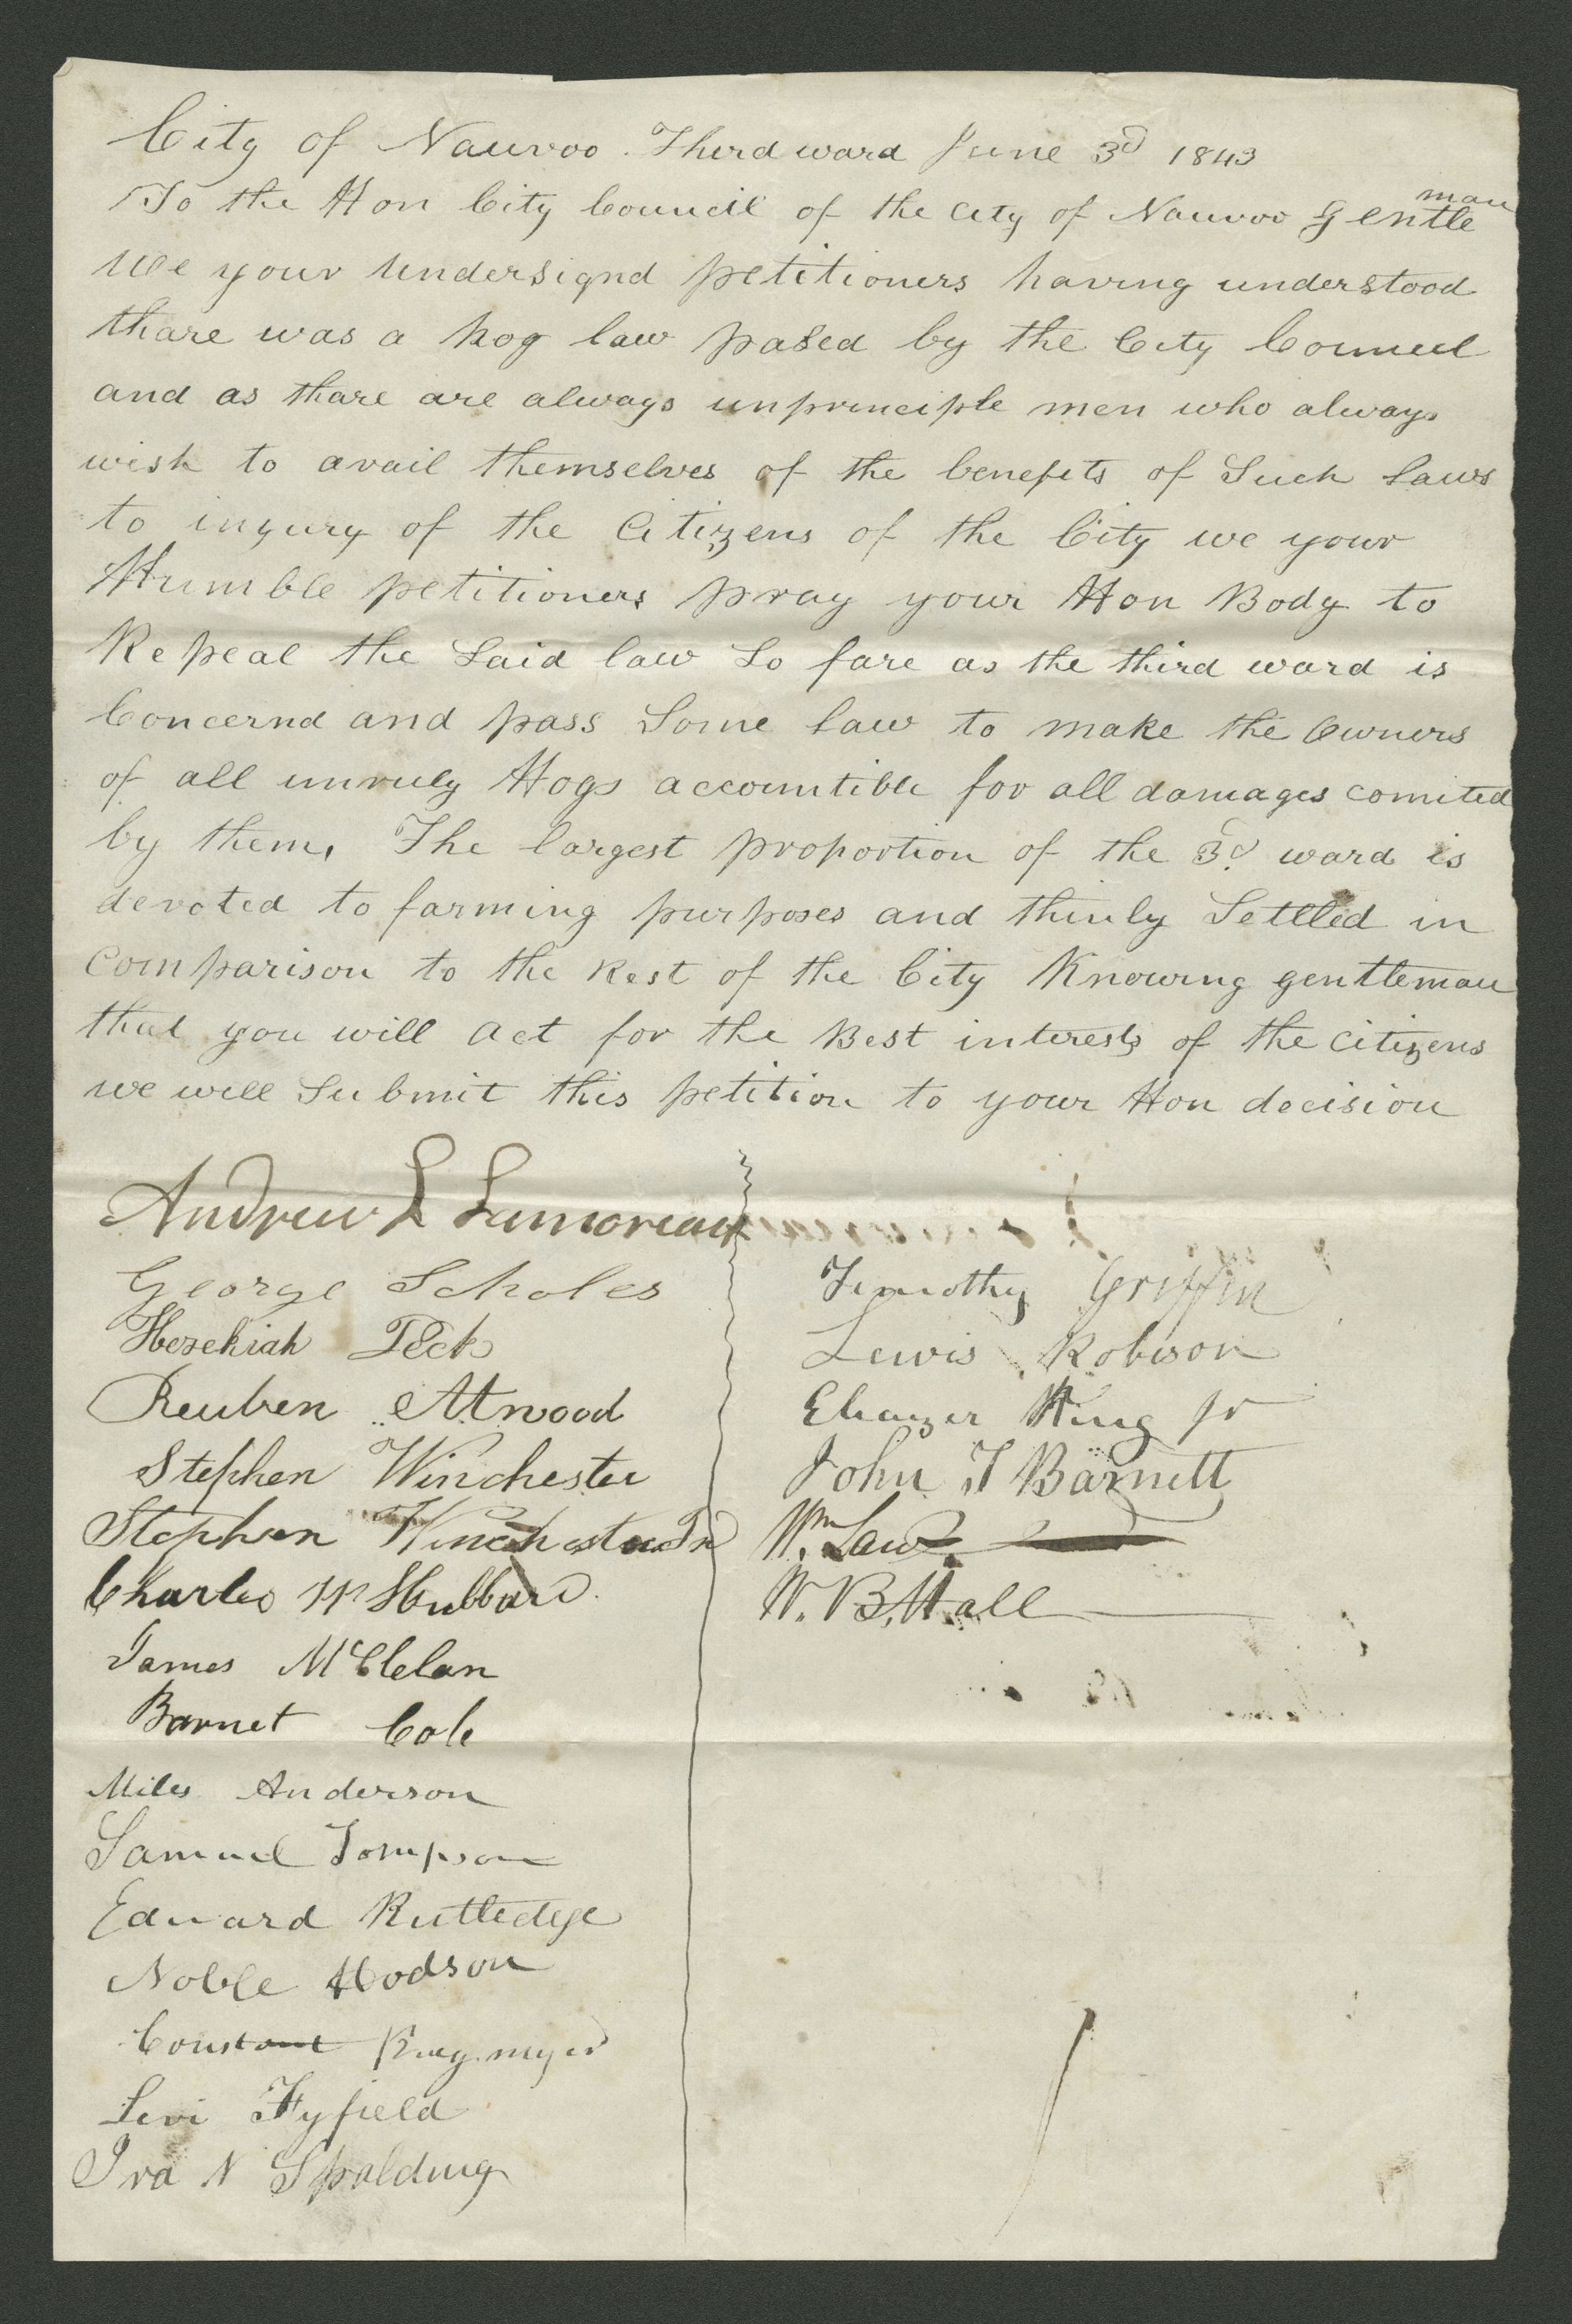 City of Nauvoo Third ward June 3d 1843
To the Hon City Council of the City of Nauvoo Gentle man
We your undersignd petitioners having understood
thare was a hog law pased by the City Council
and as thare are always unprinciple men who always
wish to avail themselves of the benefits of Such Laws
to ingury of the Citizens of the City we your
Humble petitioners pray your Hon Body to
Repeal the Said law So fare as the third ward is
Concernd and pass Some law to make the Owners
of all unruly Hogs accountible for all damages comited
by them, The largest proportion of the 3d ward is
devoted to farming purposes and thinly Settled in
Comparison to the Rest of the City Knowing gentleman
that you will act for the Best interests of the Citizens
we will Submit this petition to your Hon decision
Andrew L Lamoreaux
George Scholes
Hezekiah Peck
Reuben Atwood
Stephen Winchester
Stephen Winchester Jr
Charles W Hubbard
James McClelan
Barnet Cole
Miles Anderson
Samuel Tompson
Edward Rutledge
Noble Hodson
Constant
Levi Fyfield
Ira N Spalding
Timothy Griffin
Lewis Robison
Eleazer King Jr
John T Barnett
Wm Law
W. B. Hall